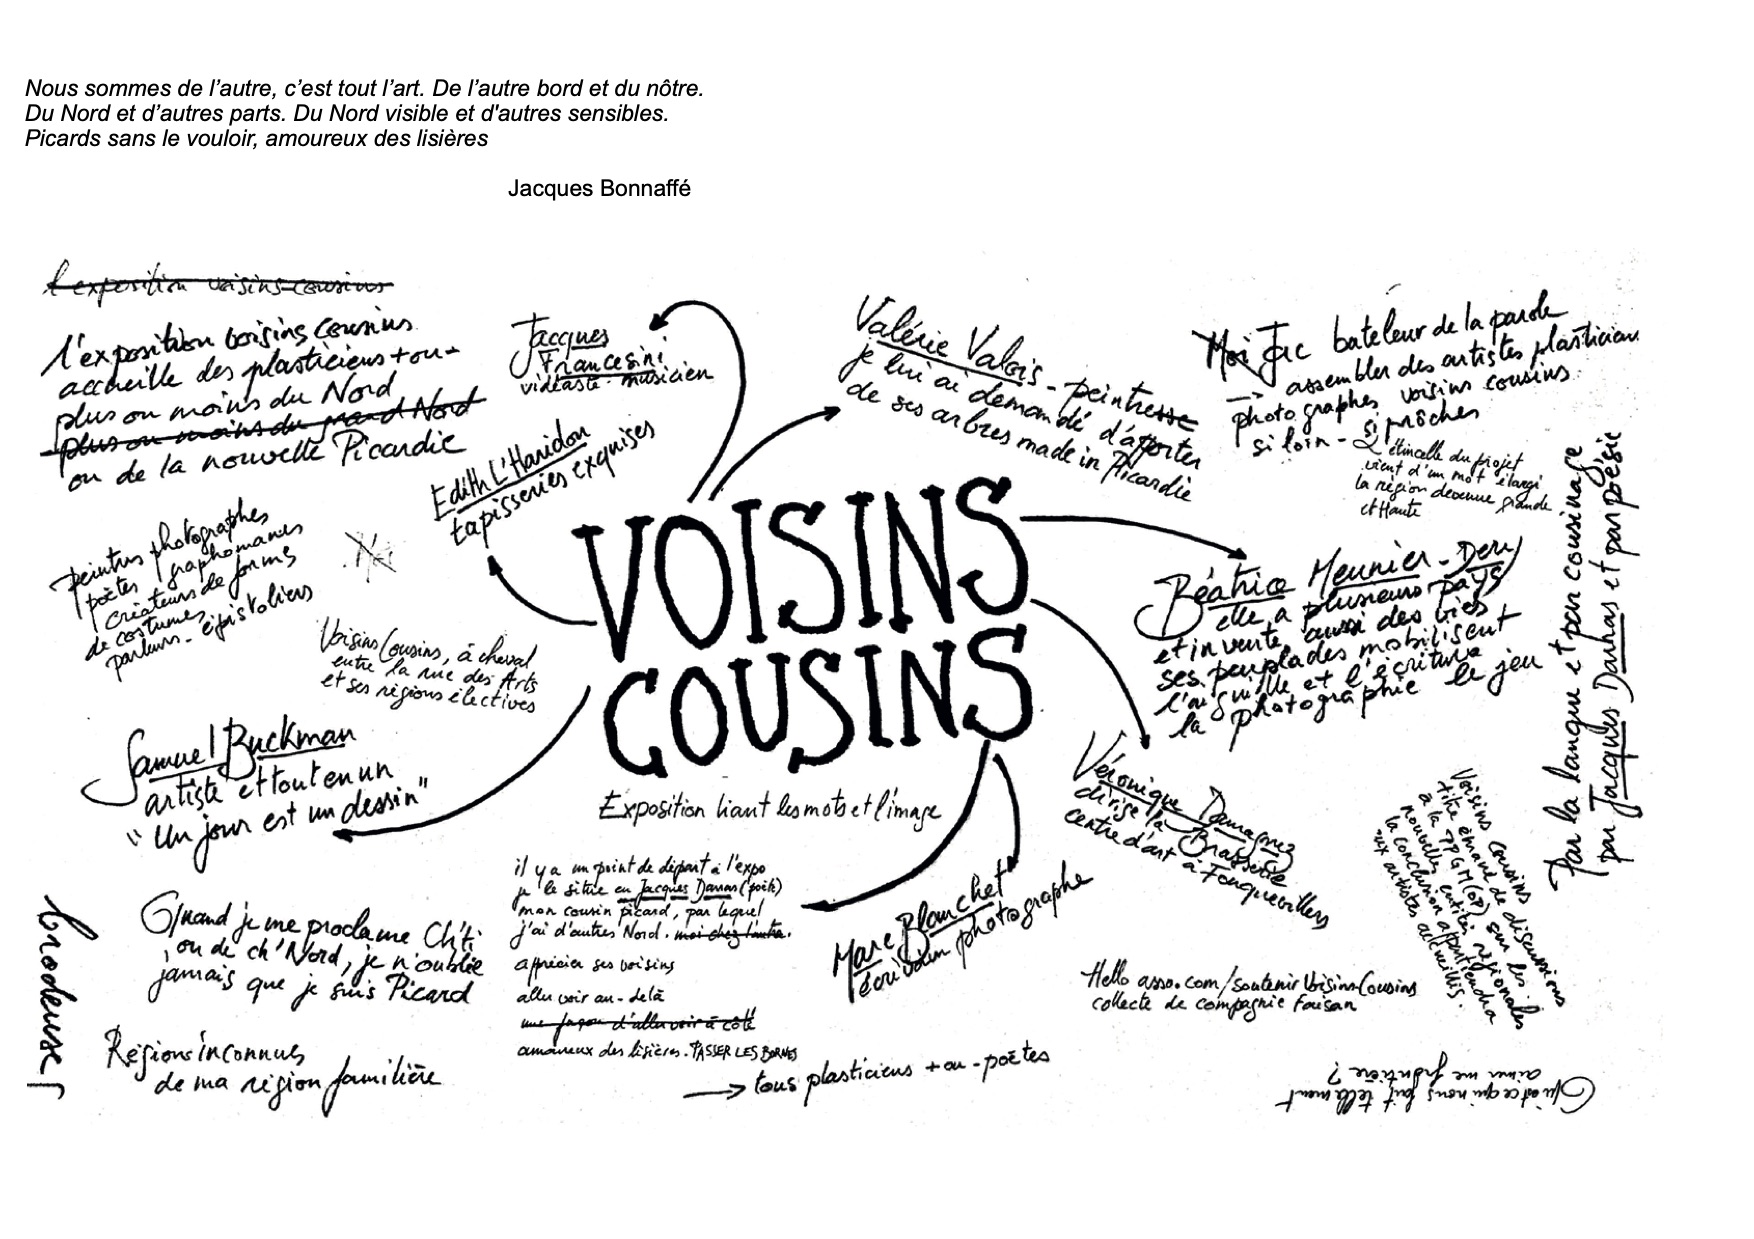 Nous sommes de l’autre, c’est tout l’art. De l’autre bord et du nôtre.
Du Nord et d’autres parts. Du Nord visible et d'autres sensibles.
Picards sans le vouloir, amoureux des lisières
Jacques Bonnaffé
l'exposition voisins cousins
l'exposition voisins cousins
accueille des plasticiens + ou -
plus ou moins du Nord
plus ou moins du grand Nord
ou de la nouvelle Picardie
Jacques
Francesini
vidéaste - musicien
Edith L'Haridon
tapisseries exquises
Valérie Valois - peintresse
je lui ai demandé d'apporter
de ses arbres made in Picardie
Moi Jac bateleur de la parole
→ assembler des artistes plasticiens
photographes voisins cousins
si loin - si prôches
L'étincelle du projet
vient d'un mot élargi
la région devenue grande
et Haute
Peintres photographes
poètes graphomanes
créateurs de formes
de costumes
parleurs - épistoliers
Voisins Cousins, à cheval
entre la rue des Arts
et ses régions électives
VOISINS
COUSINS
Exposition liant les mots et l'image
Béatrice Meunier-Dery
elle a plusieurs pays
et invente aussi des vies
ses peuplades mobilisent
l'aiguille et l'écriture
la photographie le jeu
Par la langue et par cousinage
par Jacques Darras et par poésie
Samuel Buckman
artiste et tout en un
"Un jour est un dessin"
Véronique Damagnez
dirige la Brasserie
centre d'art à Foncquevillers
Voisins cousins
titre émane de discussions
à la PPGM (op) sur les
nouvelles entités régionales
la conclusion appartiendra
aux artistes accueillis.
il y a un point de départ à l'expo
je le situe en Jacques Darras (poète)
mon cousin picard, par lequel
j'ai d'autres Nord. moi chez l'autre.
apprécier ses voisins
aller voir au-delà
une façon d'aller voir à côté
amoureux des lisières. PASSER LES BORNES
→ tous plasticiens + ou - poètes
Marc Blanchet
écrivain photographe
brodeuse
Quand je me proclame Ch'ti
ou de ch'Nord, je n'oublie
jamais que je suis Picard
Régions inconnues
de ma région familière
Hello asso.com/soutenir VoisinsCousins
collecte de compagnie faisan
Qu'est ce qui nous fait tellement
aimer une frontière ?